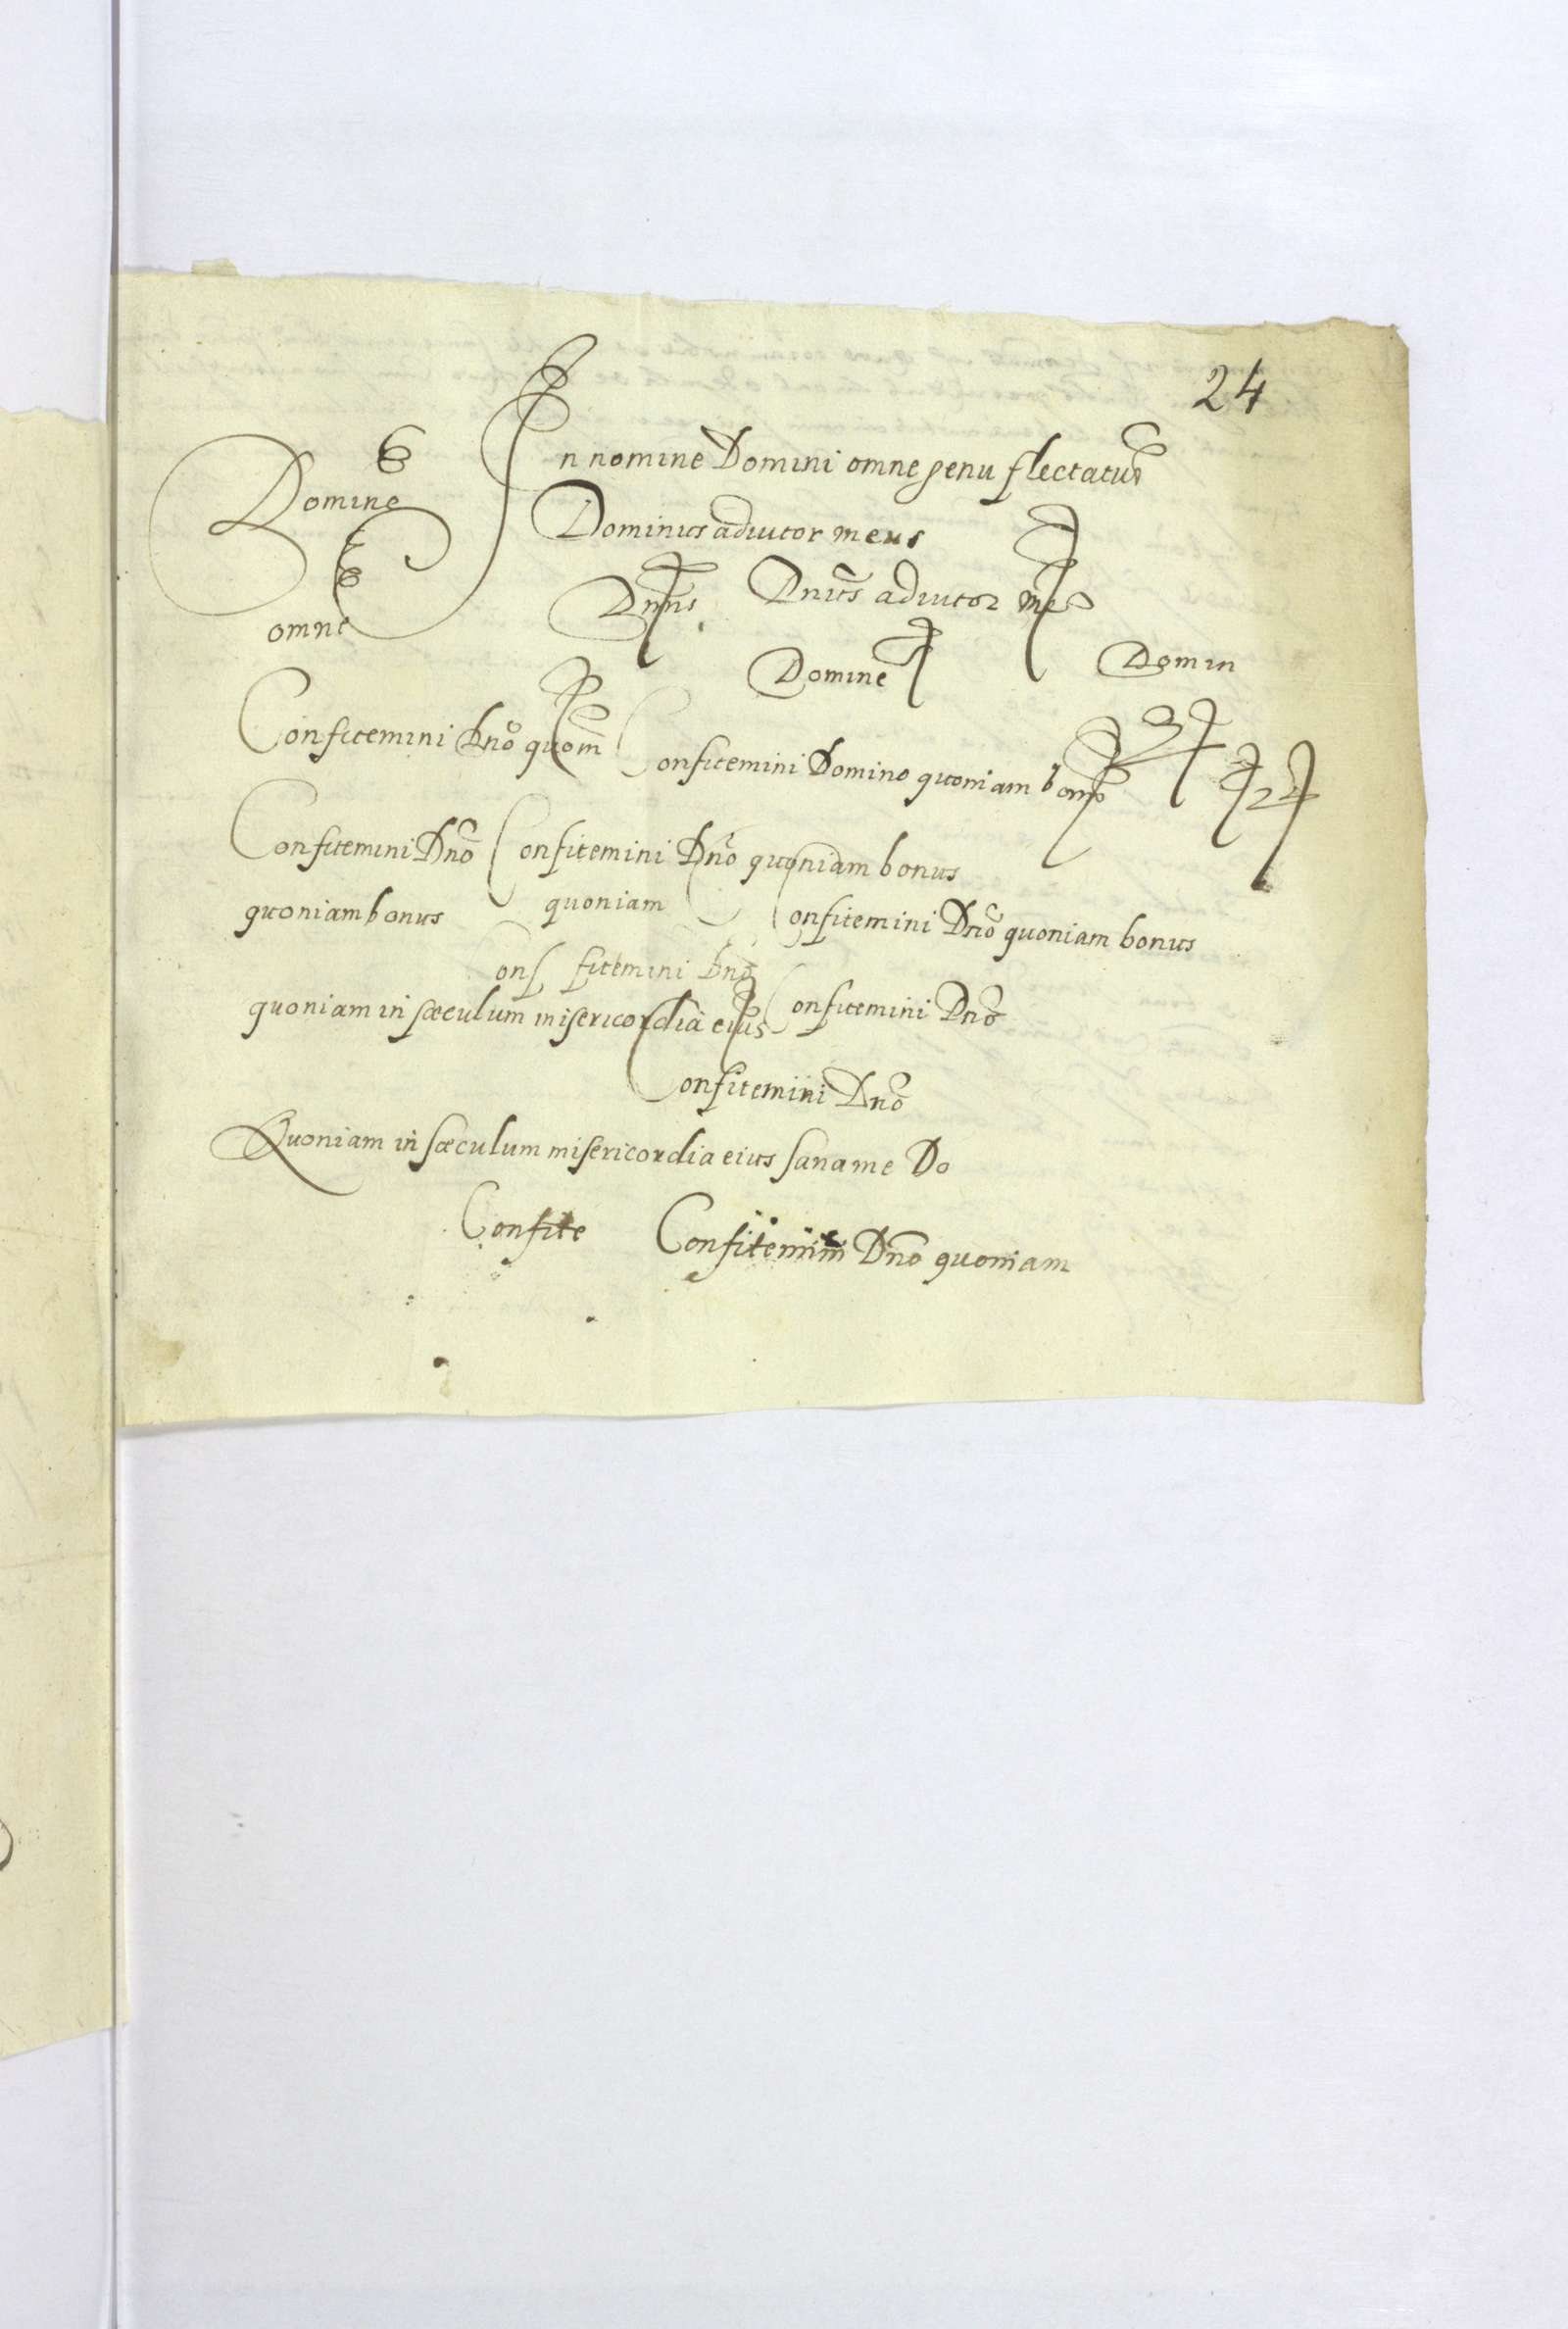 24
In nomine Domini omne genu flectatur
Domine
Dominus adiutor meus
Dnns Dnus adiutor me
omne
Domine Domin
Confitemini Dno quom Confitemini Domino quoniam bono
Confitemini Dno Confitemini Dno quoniam bonus
quoniam bonus quoniam Confitemini Dno quoniam bonus
Conf fitemini Dno
quoniam in sæculum misericordia eius Confitemini Dno
Confitemini Dno
Quoniam in sæculum misericordia eius sana me Do
Confite Confitemini Dno quoniam